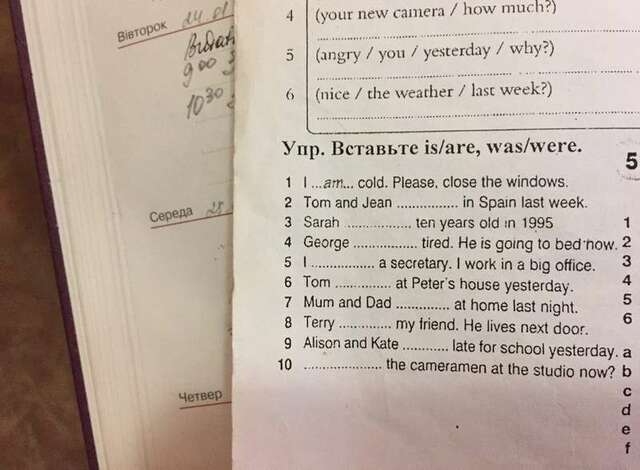 Вівторок 24
900
1030
Середа
Четвер
4 (your new camera / how much?)
5 (angry / you / yesterday / why?)
6 (nice / the weather / last week?)
Упр. Вставьте is/are, was/were.
5
1 I ...am... cold. Please, close the windows.
2 Tom and Jean .............. in Spain last week.
3 Sarah ............... ten years old in 1995
1
4 George .............. tired. He is going to bed now.
2
5 I ............... a secretary. I work in a big office.
3
6 Tom ............. at Peter's house yesterday.
4
7 Mum and Dad ............ at home last night.
5
8 Terry ............. my friend. He lives next door.
6
9 Alison and Kate ........... late for school yesterday.
a
10 .................. the cameramen at the studio now?
b
c
d
e
f